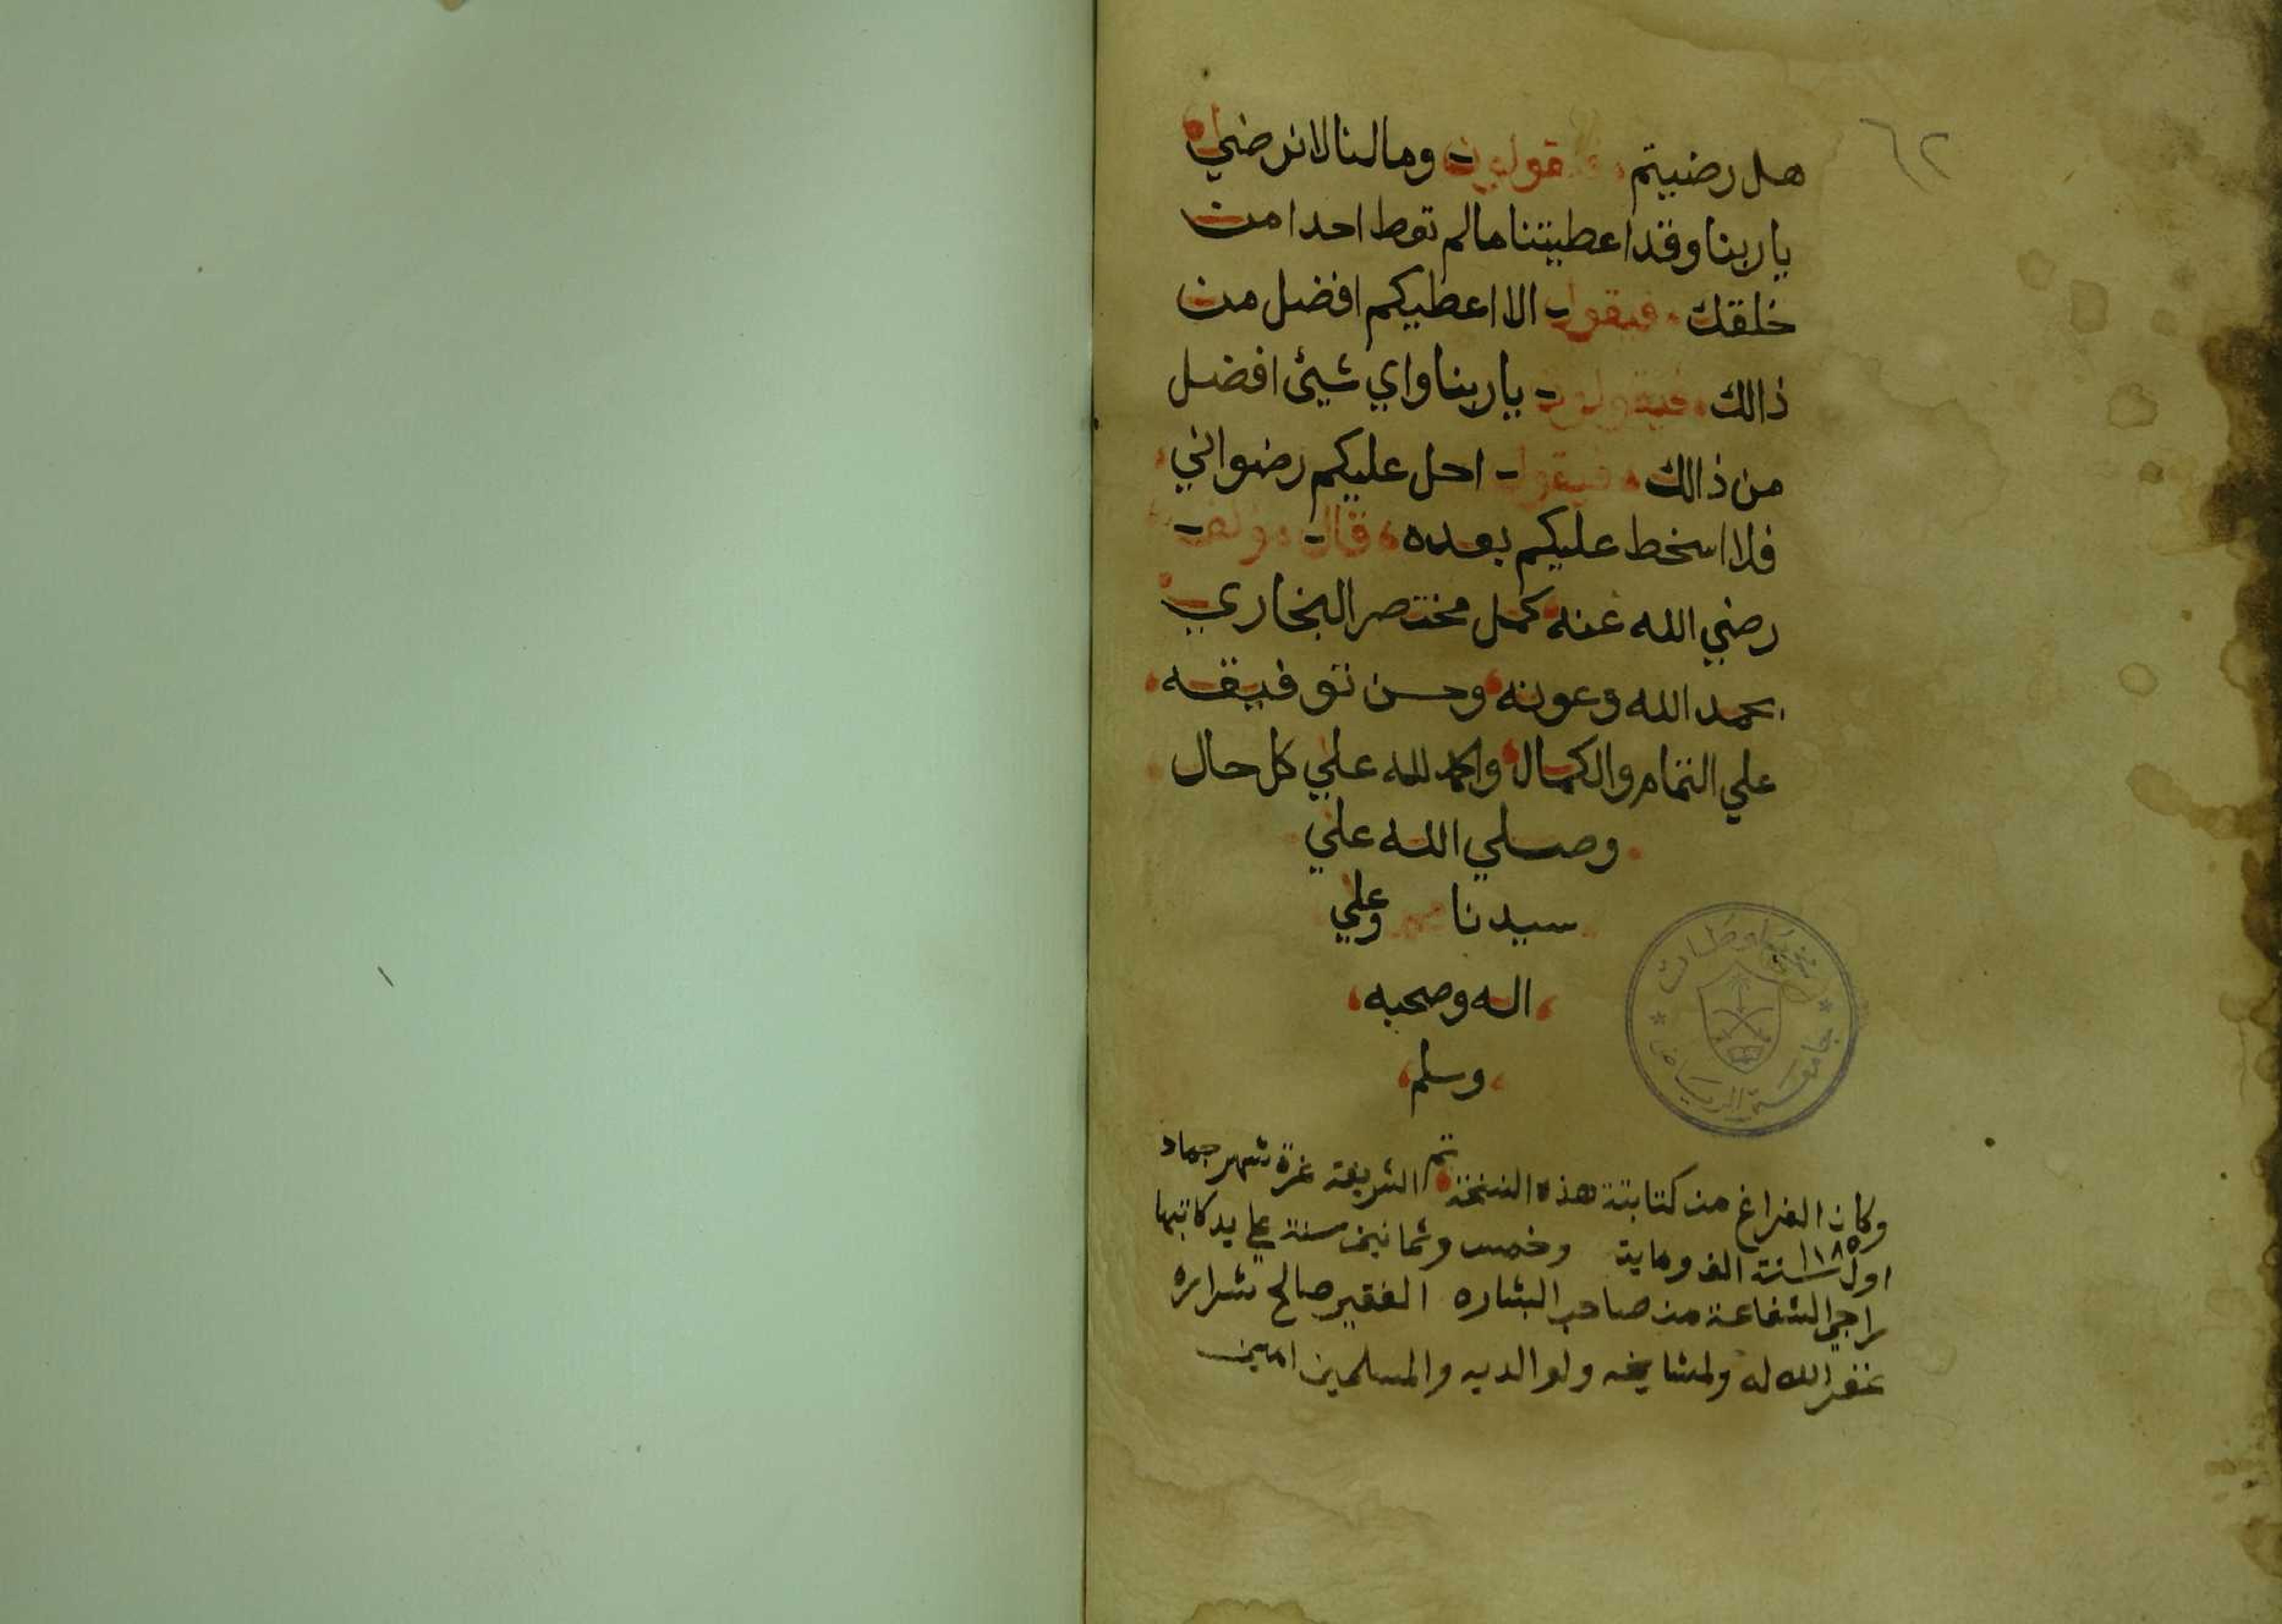 ٦٢
هل رضيتم فيقولون وما لنا لا نرضي
يا ربنا وقد اعطيتنا ما لم تعط احدا من
خلقك فيقول الا اعطيكم افضل من
ذالك فيقولون يا ربنا واي شيئ افضل
من ذالك فيقول احل عليكم رضواني
فلا اسخط عليكم بعده قال مولفه
رضي الله عنه كمل مختصر البخاري
بحمد الله وعونه وحسن توفيقه
علي التمام والكمال والحمد لله علي كل حال
وصلي الله علي
سيدنا محمد وعلي
اله وصحبه
وسلم
تم
وكان الفراغ من كتابتة هذه النسخة الشريفة غرة شهر جماد
اول ١١٨٥ سنة الف وماية وخمس وثمانين سنة علي يد كاتبها
راجي الشفاعة من صاحب البشاره الفقير صالح شراره
غفر الله له ولمشايخه ولوالديه والمسلمين امين
مخطوطات
جامعة الرياض